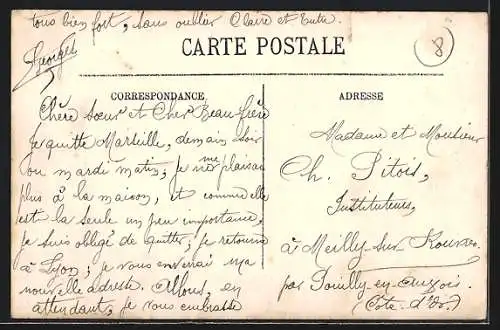 tous bien fort, sans oublier Claire et
Georges
CARTE POSTALE
8
CORRESPONDANCE
Chère Sœur et Cher Beau-frère
Je quitte Marseille, demain soir
ou mardi matin; je ne me plaisais
plus à la maison, et comme elle
est la seule un peu importante,
je suis obligé de quitter; je retourne
à Lyon; je vous enverrai ma
nouvelle adresse. Allons, en
attendant, je vous embrasse
ADRESSE
Madame et Monsieur
Ch. Pitois,
Instituteurs,
à Meilly-sur-Rouvres
par Pouilly-en-Auxois.
(Côte-d'Or)